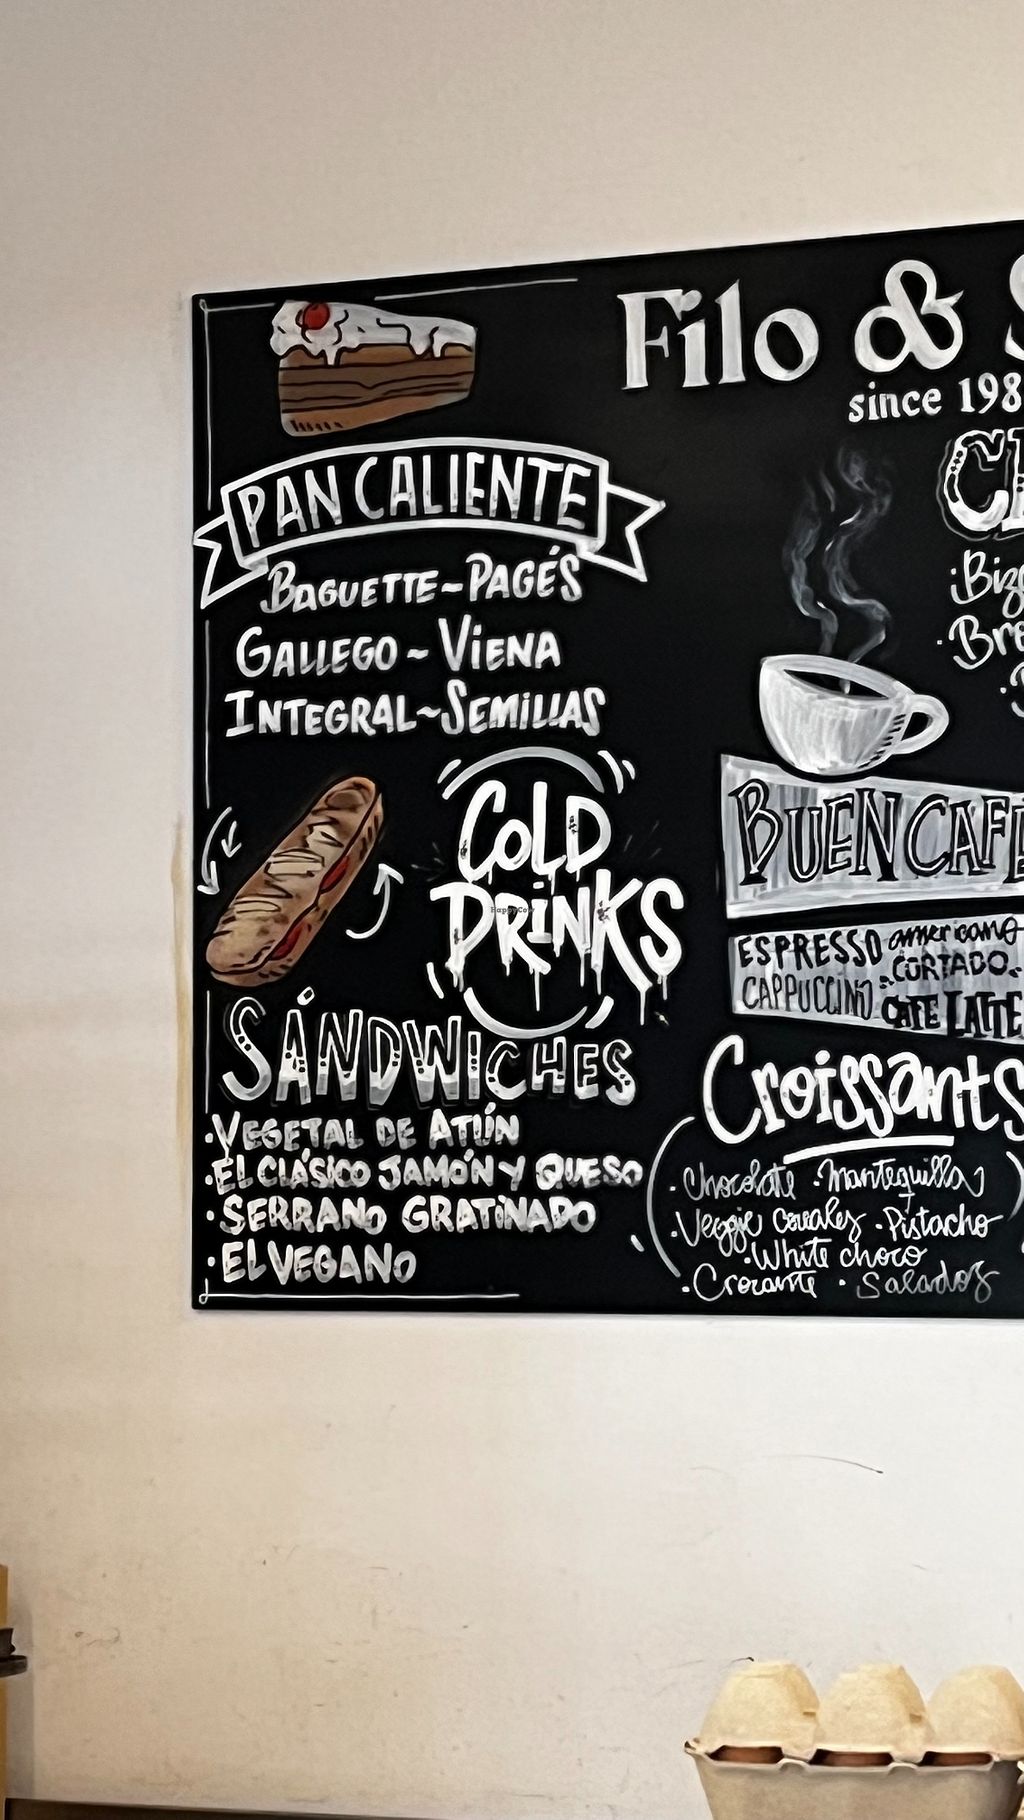 Filo &
since 198
PAN CALIENTE
BAGUETTE~PAGÉS
GALLEGO ~ VIENA
INTEGRAL~SEMILLAS
COLD
DRINKS
HappyCow
SÁNDWICHES
·VEGETAL DE ATÚN
·EL CLÁSICO JAMÓN Y QUESO
·SERRANO GRATINADO
·EL VEGANO
BUEN CAFE
ESPRESSO americano
CAPPUCCINO CORTADO
CAFE LATTE
Croissants
·Chocolate ·Mantequilla
·Veggie cereales ·Pistacho
·White choco
·Crocante ·Salados